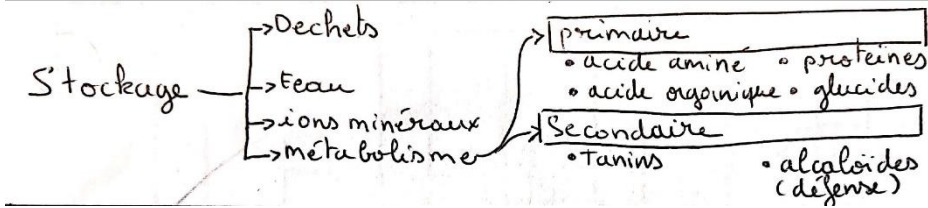 Stockage
→Dechets
→Eeau
→ions minéraux
→métabolisme
primaire
• acide aminé • protéines
• acide organique • glucides
Secondaire
• Tanins • alcaloïdes
(défense)